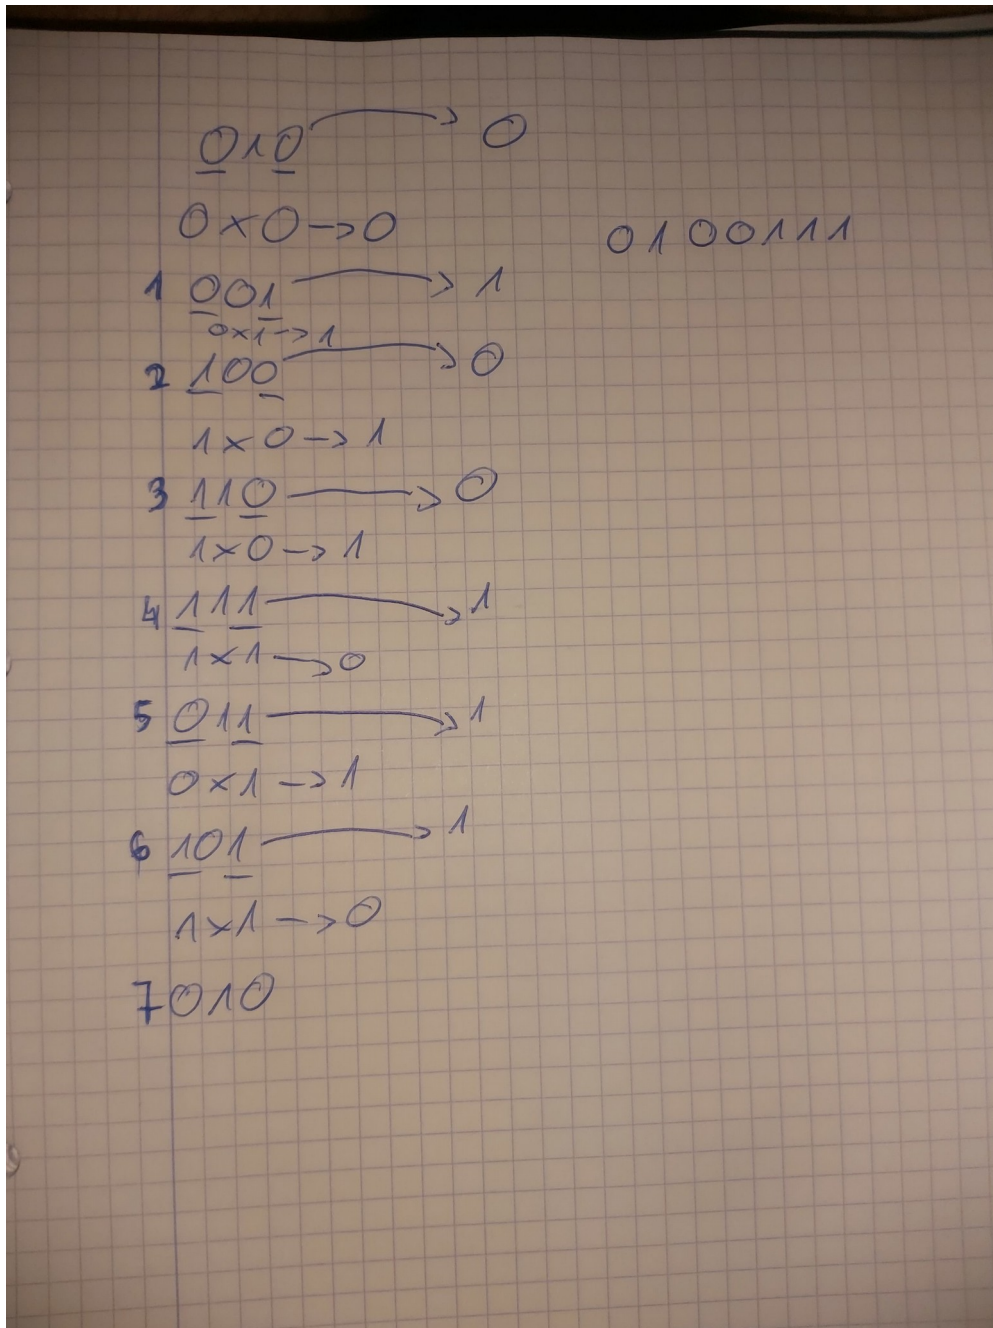 010 → 0
0×0→0
0100111
1 001 → 1
0×1→1
2 100 → 0
1×0→1
3 110 → 0
1×0→1
4 111 → 1
1×1→0
5 011 → 1
0×1→1
6 101 → 1
1×1→0
7 010